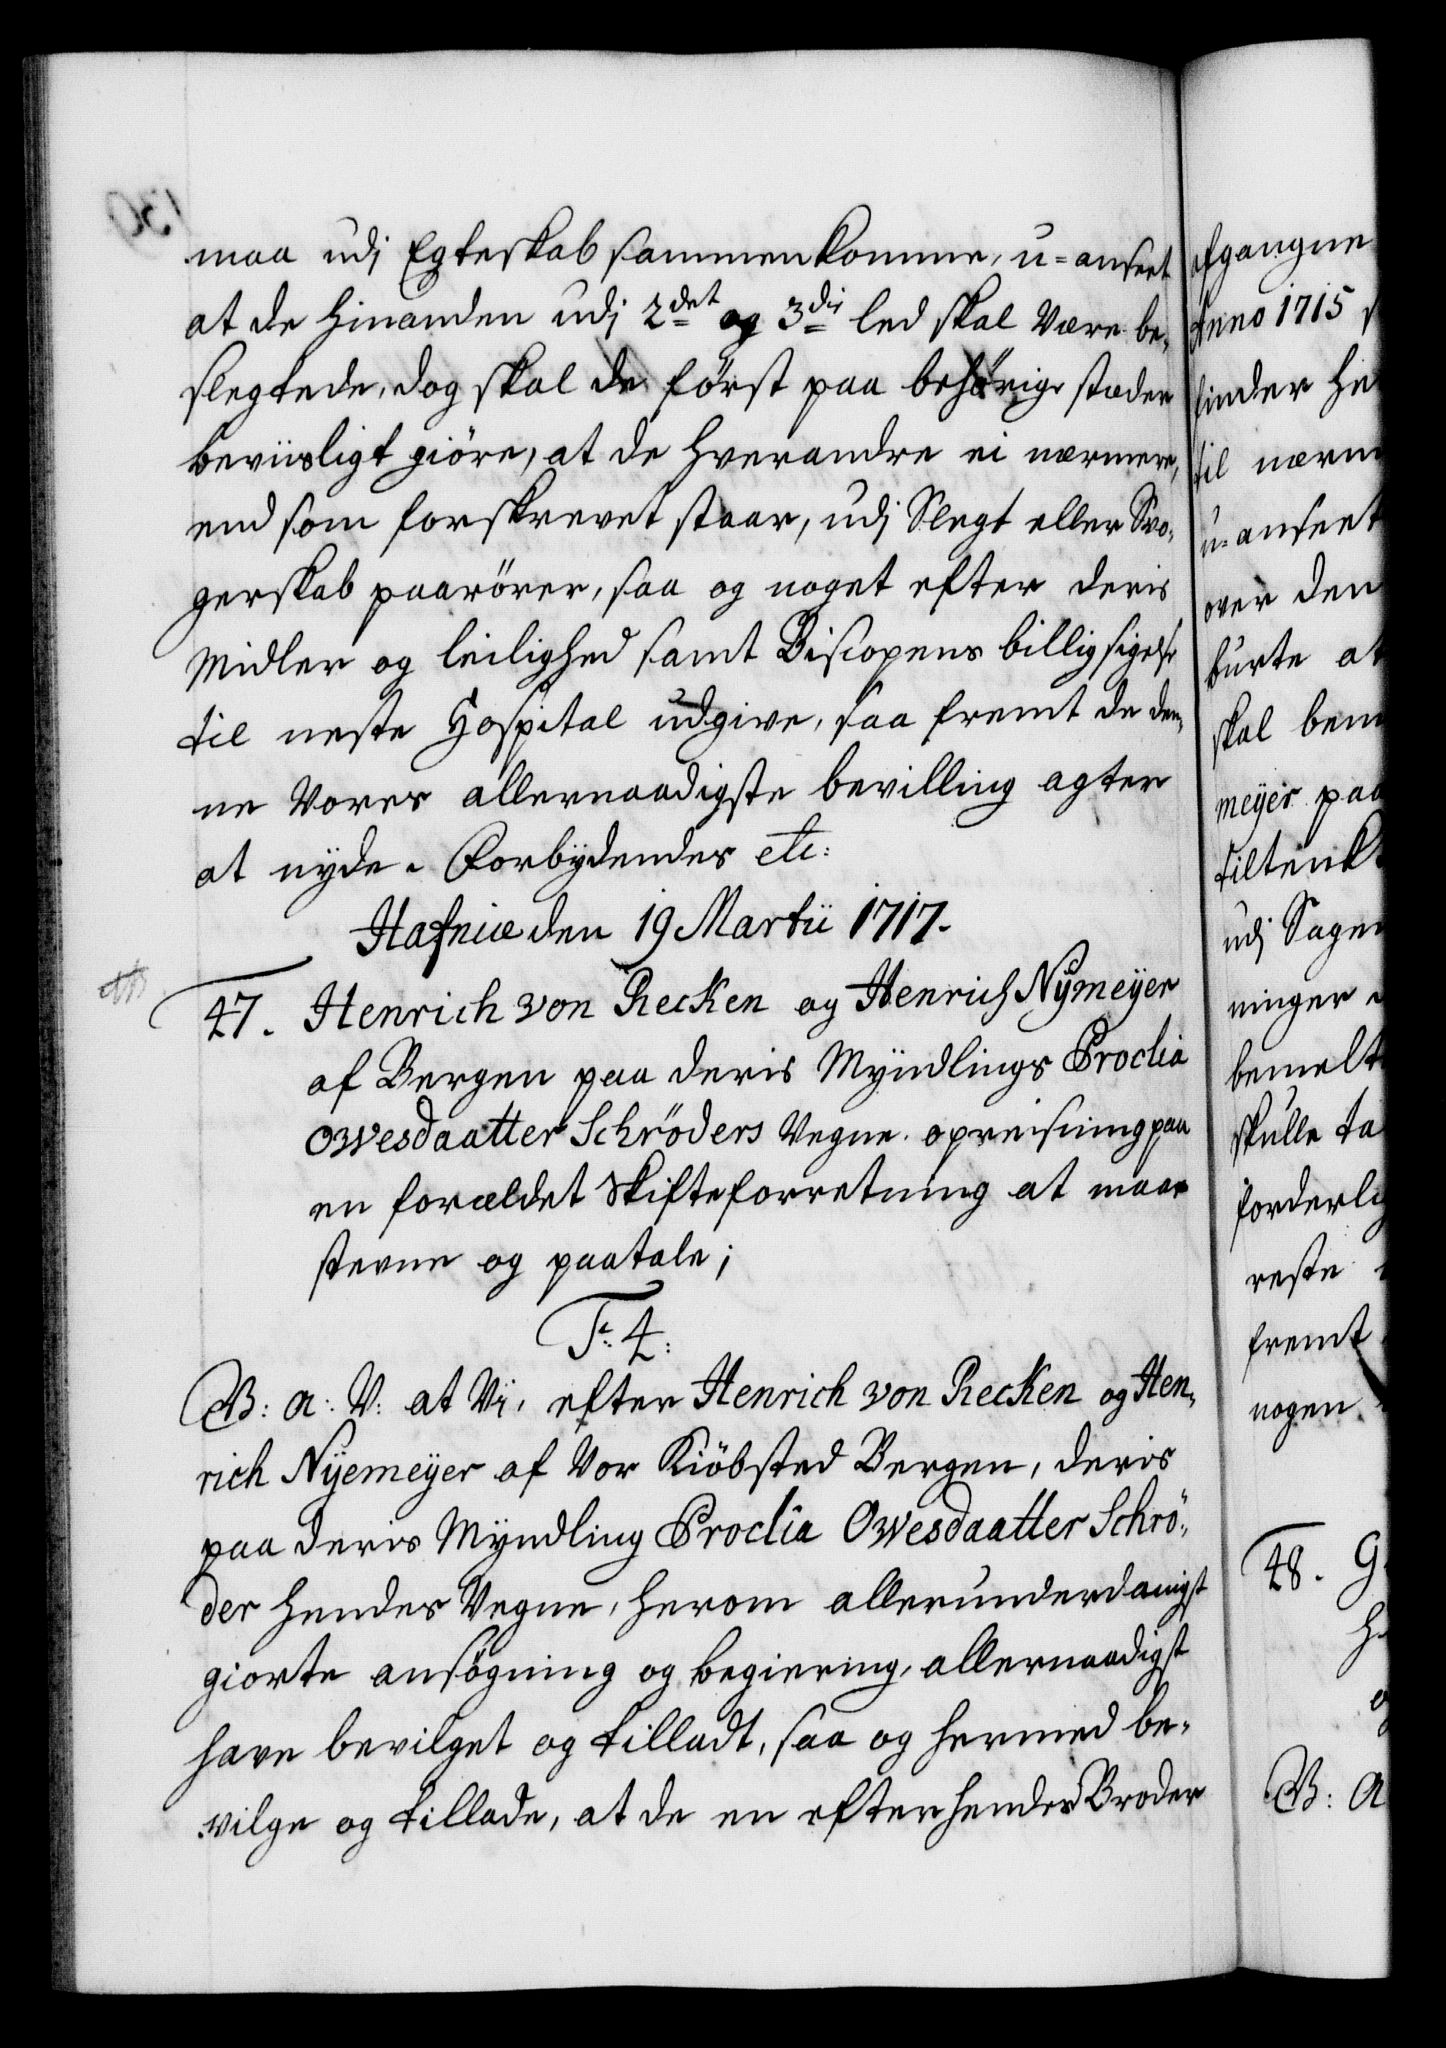 maa udj Egteskab sammenkomme, u-anseet
at de hinanden udj 2det og 3die led skal Være be-
slegtede, dog skal de først paa behörige stæder
beviisligt giöre, at de hverandre ei nærmere,
end som forskrevet staar, udj Slegt eller Svo-
gerskab paarörer, saa og noget efter deris
Midler og leilighed samt Biscopens billigsigelse
til neste Hospital udgive, saa fremt de den-
ne Vores allernaadigste bevilling agter
at nyde. Forbydendes etc:
Hafniæ den 19 Martii 1717.
47. Henrich von Recken og Henrich Nymeyer
af Bergen paa deris Myndlings Proclia
Owesdaatter Schröders Vegne. opreisning paa
en forældet Skifteforretning at maae
stevne og paatale;
Fr. 4:
B: A: V: at Vi, efter Henrich von Recken og Hen-
rich Nyemeyer af Vor Kiöbsted Bergen, deris
paa deris Myndling Proclia Owesdaatter Schrö-
der hendes Vegne, herom allerunderdanigst
giorte ansögning og begiering, allernaadigst
have bevilget og tilladt, saa og hermed be-
vilge og tillade, at de en efter hendes Broder
afgangne
Anno 1715
finder he
til nærm
u-anseet
over den
burte at
skal bem
meyer paa
tiltenkt
udj Sagen
ninger
bemelt
skulle ta
forderlig
reste
fremt
nogen
48. G
h
B: A